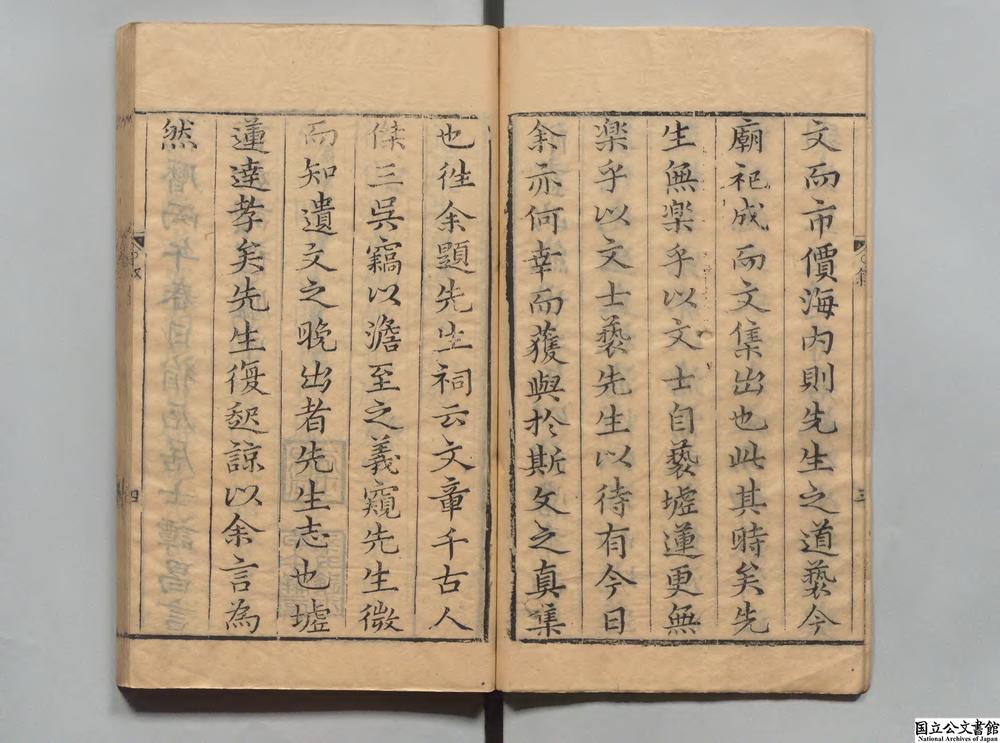 文而市價海内則先生之道藝今
廟祀成而文集出也此其時矣先
生無楽乎以文士自藝墟蓮更無
楽乎以文士藝先生以待有今日
余亦何幸而獲與於斯文之真集
也徃余題先生祠云文章千古人
傑三吳竊以澹至之義窺先生微
而知遺文之晚出者先生志也墟
蓮達孝矣先生復起諒以余言為
然
三
四
国立公文書館
National Archives of Japan